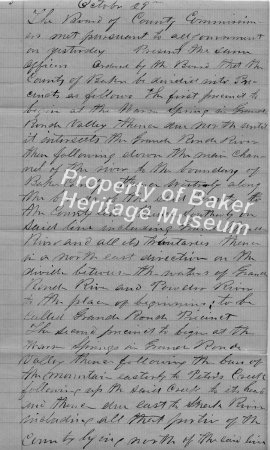 October 28th
The Board of County Commission-
ers met pursuant to adjournment
on yesterday Present the same
officers Ordered by the Board that the
County of Baker be divided into Pre-
cincts as follows the first precinct to
begin at the Warm Spring in Grand
Ronde Valley thence due North until
it intersects the Grand Ronde River
then following down the main chan-
nel of the to the boundary of
Baker thence along
the
the County on
said line including
River and all its tributaries thence
in a north east direction on the
divide between the waters of Grand
Ronde River and Powder River
to the place of beginning; to be
called Grande Ronde Precinct
The second precinct to begin at the
Warm Springs in Grand Ronde
Valley thence following the base of
the Mountain easterly to Creek
following up the said Creek to its
and thence due east to Snake River
including all that portion of the
County lying north of the said line
Property of Baker
Heritage Museum